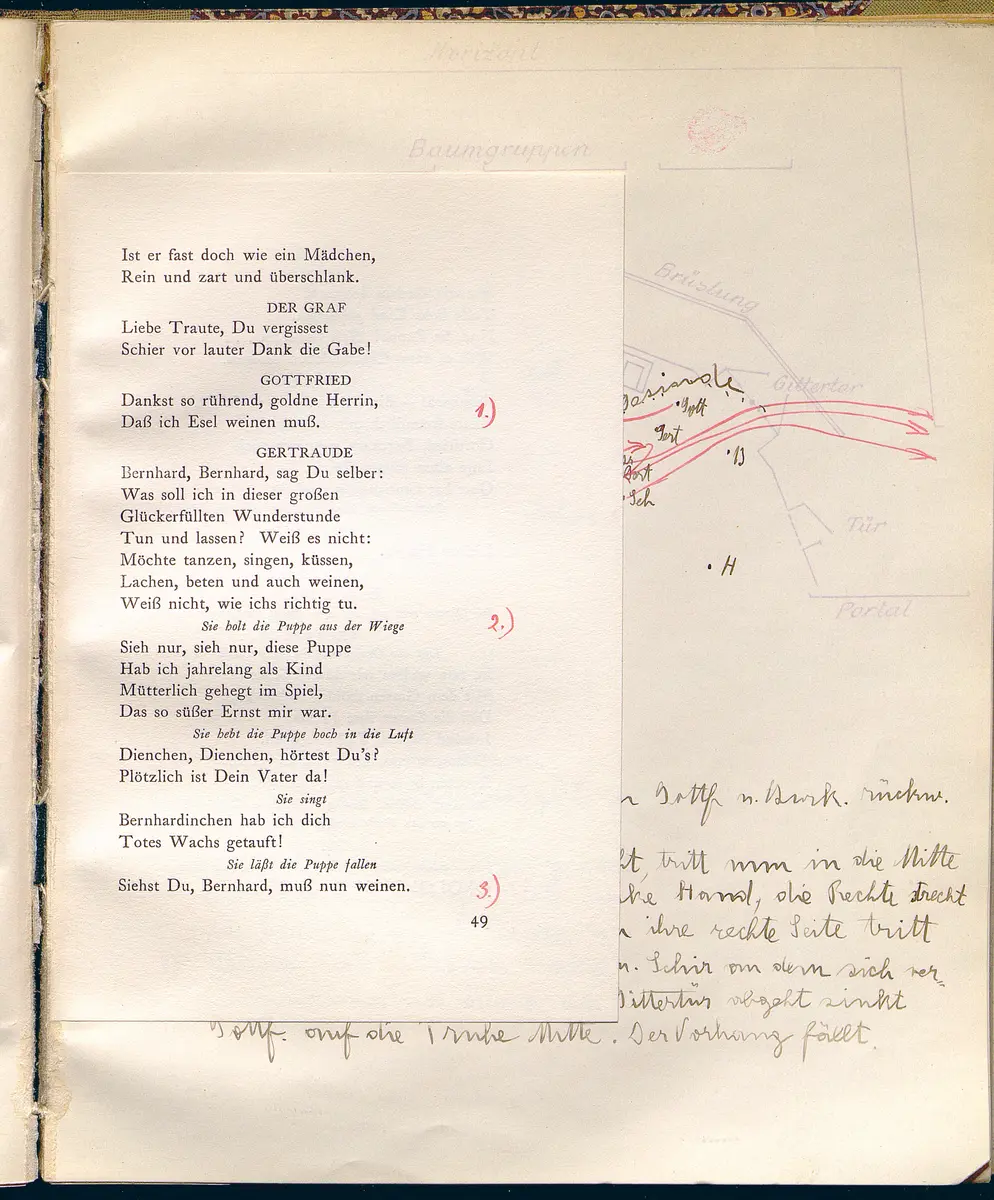 Horizont
Baumgruppen
Brüstung
Gittertor
Gott
Gert
B
Sch
H
Tür
Portal
Ist er fast doch wie ein Mädchen,
Rein und zart und überschlank.
DER GRAF
Liebe Traute, Du vergissest
Schier vor lauter Dank die Gabe!
GOTTFRIED
Dankst so rührend, goldne Herrin,
Daß ich Esel weinen muß. 1.)
GERTRAUDE
Bernhard, Bernhard, sag Du selber:
Was soll ich in dieser großen
Glückerfüllten Wunderstunde
Tun und lassen? Weiß es nicht:
Möchte tanzen, singen, küssen,
Lachen, beten und auch weinen,
Weiß nicht, wie ichs richtig tu.
Sie holt die Puppe aus der Wiege 2.)
Sieh nur, sieh nur, diese Puppe
Hab ich jahrelang als Kind
Mütterlich gehegt im Spiel,
Das so süßer Ernst mir war.
Sie hebt die Puppe hoch in die Luft
Dienchen, Dienchen, hörtest Du's?
Plötzlich ist Dein Vater da!
Sie singt
Bernhardinchen hab ich dich
Totes Wachs getauft!
Sie läßt die Puppe fallen
Siehst Du, Bernhard, muß nun weinen. 3.)
49
Gottfr u. Burk. rückw.
tritt nun in die Mitte
Hand, die Rechte streckt
ihre rechte Seite tritt
an dem sich ver-
Gittertür abgeht sinkt
Gottfr. auf die Truhe Mitte. Der Vorhang fällt.